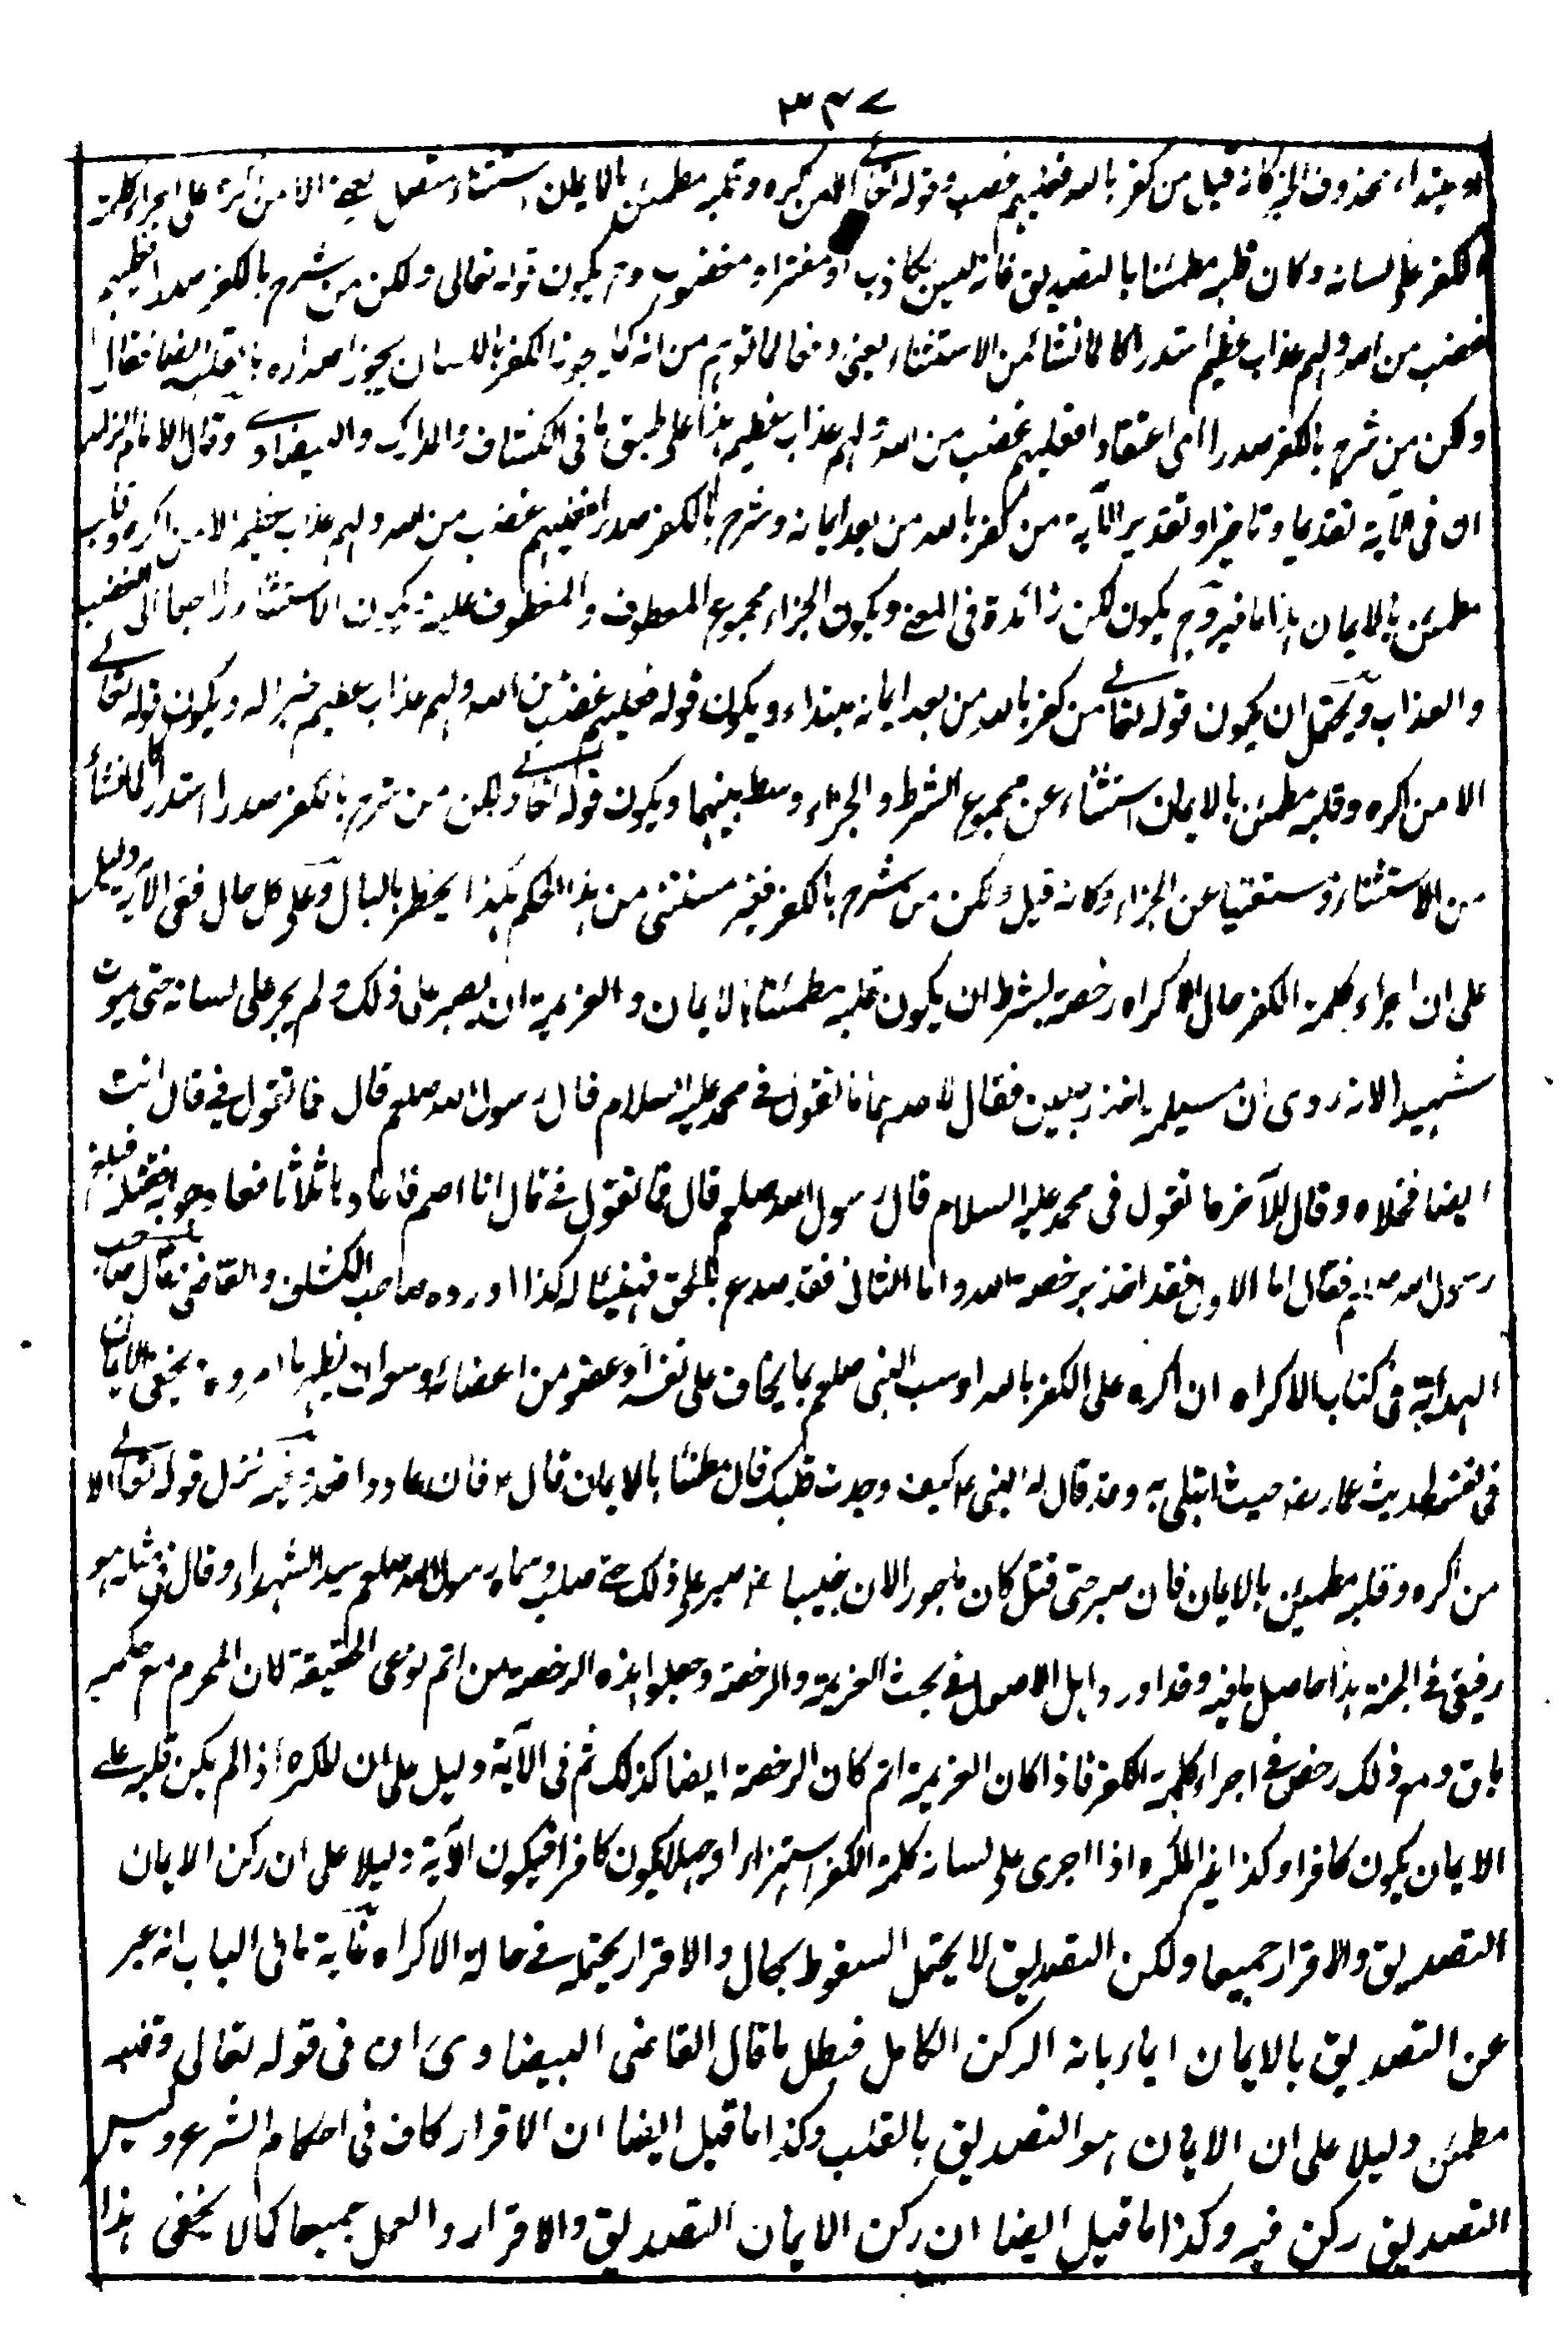 ٣٤٧
او مبتداء محذوف الخبر كانه قيل من كفر بالله فعليهم غضب وقوله تعالى الا من اكره وقلبه مطمئن بالايمان استثناء متصل يعنى الا من اكره على اجراء كلمة
الكفر على لسانه وكان قلبه مطمئنا بالتصديق فانه ليس بكاذب او مفتر او مغضوب وح يكون قوله تعالى ولكن من شرح بالكفر صدرا فعليهم
غضب من الله ولهم عذاب عظيم استدراكا لما نشأ من الاستثناء يعنى دفعا لما توهم من انه كما يجوز الكفر باللسان يجوز اصداره بالقلب ايضا فقال
ولكن من شرح بالكفر صدرا اى اعتقادا فعليهم غضب من الله ولهم عذاب عظيم هذا على طبق ما فى الكشاف والمدارك والبيضاوى وقال الامام الزاهد
ان فى الآية تقديما وتاخيرا وتقدير الآية من كفر بالله من بعد ايمانه وشرح بالكفر صدرا فعليهم غضب من الله ولهم عذاب عظيم الا من اكره وقلبه
مطمئن بالايمان هذا ما فيه وح يكون لكن زائدة فى المعنى ويكون الجزاء مجموع المعطوف والمعطوف عليه فيكون الاستثناء راجعا الى الغضب
والعذاب ويحتمل ان يكون قوله تعالى من كفر بالله من بعد ايمانه مبتداء ويكون قوله فعليهم غضب من الله ولهم عذاب عظيم خبرا له ويكون قوله تعالى
الا من اكره وقلبه مطمئن بالايمان استثناء عن مجموع الشرط والجزاء وسط بينهما ويكون قوله تعالى ولكن من شرح بالكفر صدرا استدراكا لما نشأ
من الاستثناء ومستغنيا عن الجزاء وكانه قيل ولكن من شرح بالكفر فغير مستثنى من هذا الحكم هكذا يخطر بالبال وعلى كل حال ففى الآية دليل
على ان اجراء كلمة الكفر حال الاكراه رخصة بشرط ان يكون قلبه مطمئنا بالايمان والعزيمة ان يصبر على ذلك ولم يجر على لسانه حتى يموت
شهيدا لانه روى ان مسيلمة اخذ رجلين فقال لاحدهما ما تقول فى محمد عليه السلام قال رسول الله صلعم قال فما تقول فى قال انت
ايضا فخلاه وقال للآخر ما تقول فى محمد عليه السلام قال رسول الله صلعم قال فما تقول فى قال انا اصم فاعاد ثلاثا فعاد جوابه فقتله فبلغ
رسول الله صلعم فقال اما الاول فقد اخذ برخصة الله واما الثانى فقد صدع بالحق فهنيئا له كذا اورده صاحب الكشاف والقاضى فقال صاحب
الهداية فى كتاب الاكراه ان اكره على الكفر بالله او سب النبى صلعم بما يخاف على نفسه او عضو من اعضائه وسواه ان يظهر ما امروه به يخفى الايمان
فى نفسه لحديث عمار رضه حيث ابتلى به وقد قال له النبى ع كيف وجدت قلبك قال مطمئنا بالايمان قال ع فان عادوا فعد وفيه نزل قوله تعالى الا
من اكره وقلبه مطمئن بالايمان فان صبر حتى قتل كان ماجورا لان خبيبا رضه صبر على ذلك حتى صلب وسماه رسول الله صلعم سيد الشهداء وقال فى مثله هو
رفيقى فى الجنة هذا حاصل ما فيه وقد اورد اهل الاصول فى بحث العزيمة والرخصة وجعلوا هذه الرخصة من اتم نوعى الحقيقة لان المحرم مع حكمه
باق ومع ذلك رخص فى اجراء كلمة الكفر فاذا كان العزيمة اتم كان الرخصة ايضا كذلك ثم فى الآية دليل على ان المكره اذا لم يكن قلبه على
الايمان يكون كافرا وكذا غير المكره اذا اجرى على لسانه كلمة الكفر استهزاء او جهلا يكون كافرا فيكون الآية دليلا على ان ركن الايمان
التصديق والاقرار جميعا ولكن التصديق لا يحتمل السقوط بحال والاقرار يحتمله فى حالة الاكراه غاية ما فى الباب انه عبر
عن التصديق بالايمان ايماء بانه الركن الكامل فبطل ما قال القاضى البيضاوى ان فى قوله تعالى وقلبه
مطمئن دليلا على ان الايمان هو التصديق بالقلب وكذا ما قيل ايضا ان الاقرار كاف فى احكام الشرع وليس
التصديق ركن فيه وكذا ما قيل ايضا ان ركن الايمان التصديق والاقرار والعمل جميعا كما لا يخفى هذا